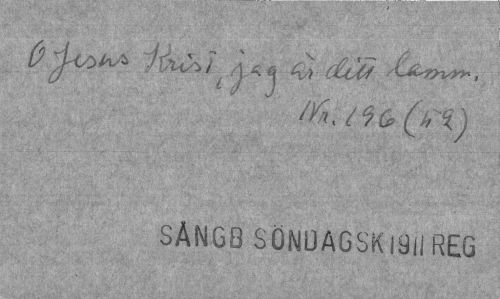 O Jesus Krist, jag är ditt lamm.
Nr. 196 (52)
SÅNGB SÖNDAGSK 1911 REG